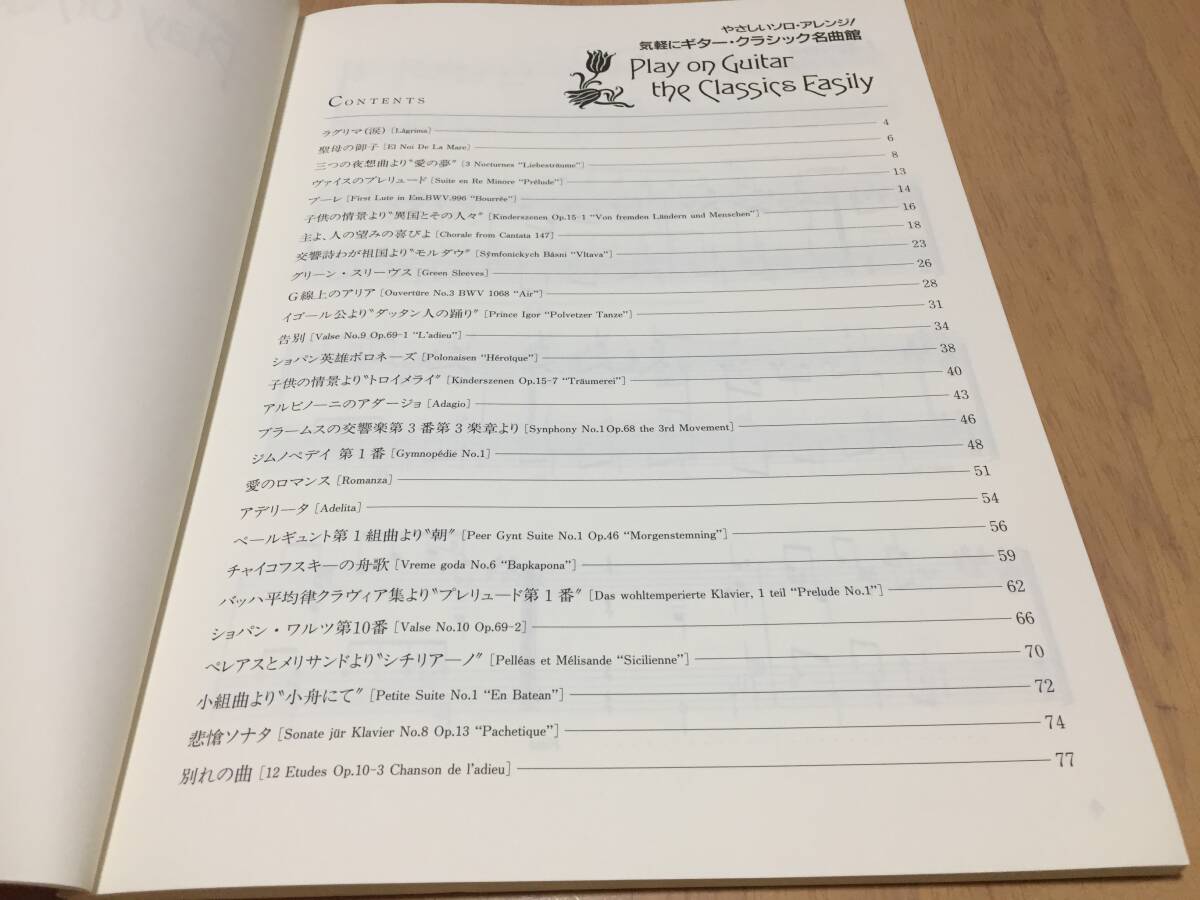 やさしいソロ・アレンジ!
気軽にギター・クラシック名曲館
Play on Guitar
the Classics Easily
CONTENTS
ラグリマ(涙) [Lágrima] 4
聖母の御子 [El Noi De La Mare] 6
三つの夜想曲より〝愛の夢〞 [3 Nocturnes “Liebesträume”] 8
ヴァイスのプレリュード [Suite en Re Minore “Prélude”] 13
ブーレ [First Lute in Em.BWV.996 “Bourrée”] 14
子供の情景より〝異国とその人々〞 [Kinderszenen Op.15-1 “Von fremden Ländern und Menschen”] 16
主よ、人の望みの喜びよ [Chorale from Cantata 147] 18
交響詩わが祖国より〝モルダウ〞 [Sýmfonickych Básni “Vltava”] 23
グリーン・スリーヴス [Green Sleeves] 26
G線上のアリア [Ouvertüre No.3 BWV 1068 “Air”] 28
イゴール公より〝ダッタン人の踊り〞 [Prince Igor “Polvetzer Tanze”] 31
告別 [Valse No.9 Op.69-1 “L'adieu”] 34
ショパン英雄ポロネーズ [Polonaisen “Héroïque”] 38
子供の情景より〝トロイメライ〞 [Kinderszenen Op.15-7 “Träumerei”] 40
アルビノーニのアダージョ [Adagio] 43
ブラームスの交響楽第3番第3楽章より [Synphony No.1 Op.68 the 3rd Movement] 46
ジムノペデイ 第1番 [Gymnopédie No.1] 48
愛のロマンス [Romanza] 51
アデリータ [Adelita] 54
ペールギュント第1組曲より〝朝〞 [Peer Gynt Suite No.1 Op.46 “Morgenstemning”] 56
チャイコフスキーの舟歌 [Vreme goda No.6 “Bapkapona”] 59
バッハ平均律クラヴィア集より〝プレリュード第1番〞 [Das wohltemperierte Klavier, 1 teil “Prelude No.1”] 62
ショパン・ワルツ第10番 [Valse No.10 Op.69-2] 66
ペレアスとメリサンドより〝シチリアーノ〞 [Pelléas et Mélisande “Sicilienne”] 70
小組曲より〝小舟にて〞 [Petite Suite No.1 “En Batean”] 72
悲愴ソナタ [Sonate jür Klavier No.8 Op.13 “Pachetique”] 74
別れの曲 [12 Etudes Op.10-3 Chanson de l'adieu] 77